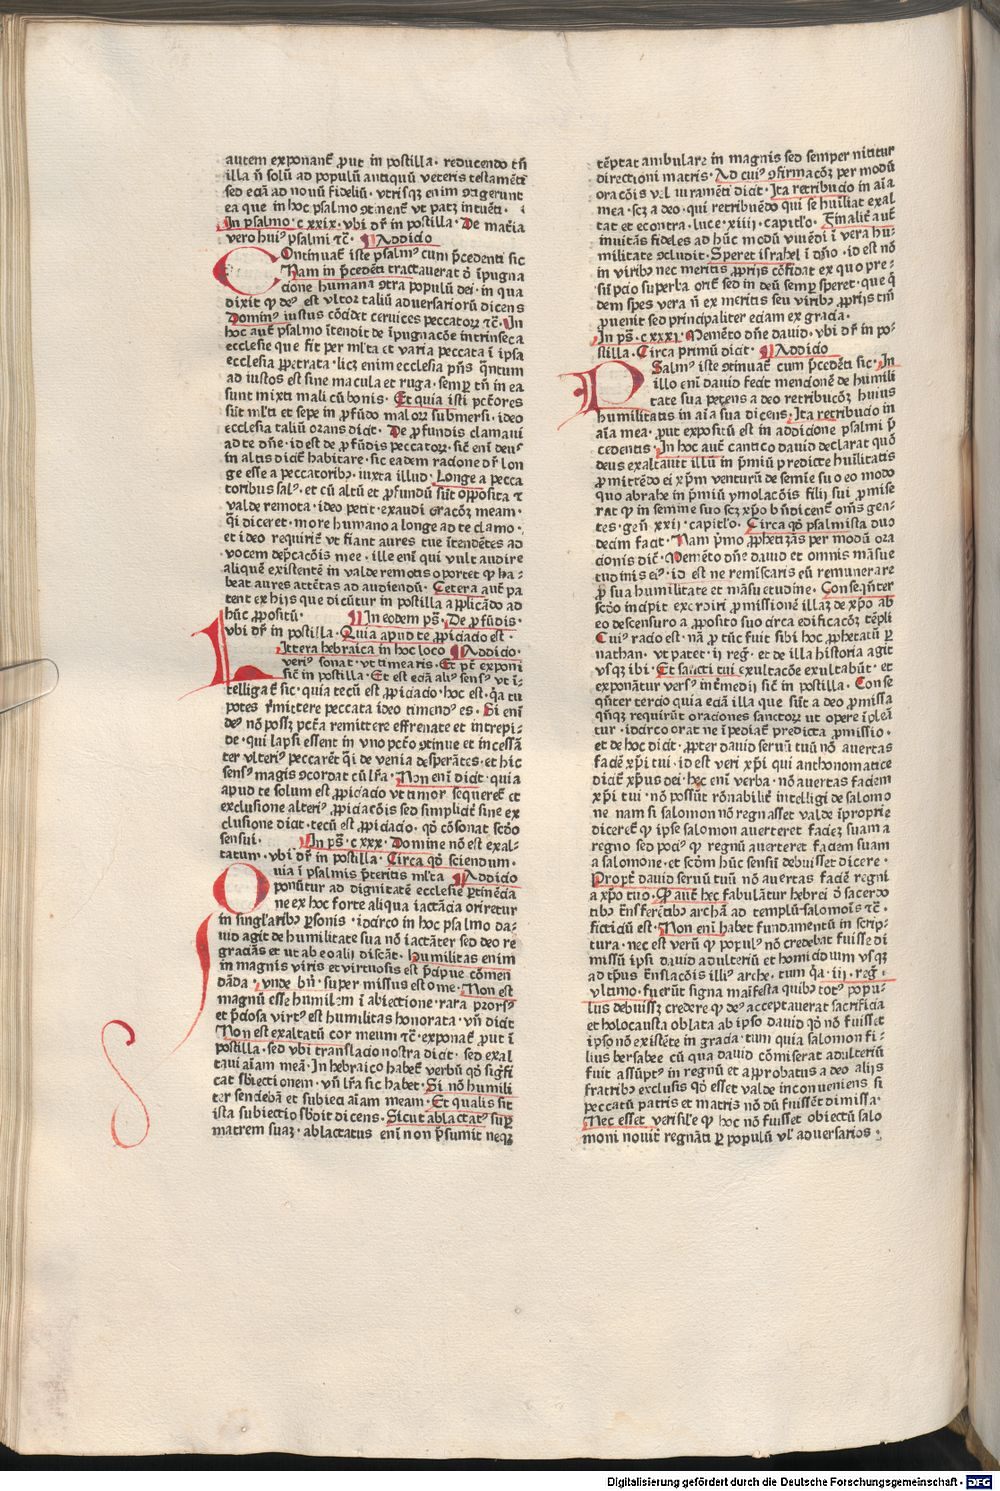 autem exponanť ꝓut in postilla· reducendo tñ
illa ñ solũ ad populũ antiquũ veteris testamẽti
sed eciã ad nouũ fideliũ· vtriusqꝫ enim ꝯtigerunt
ea que in hoc psalmo ꝯtinenť vt patꝫ intuẽti·
In psalmo· cxxix· vbi dr̃ in postilla· De matĩa
vero huiꝰ psalmi ꝛc̃· Addicio
COntinuať iste psalmꝰ cum p̃cedenti sic
Nam in p̃cedẽti tractauerat ð ĩpugna
cione humana ꝯtra populũ dei· in qua
dixit ꝙ deꝰ est vltor taliũ aduersariorũ dicens
Dominꝰ iustus cõcidet ceruices peccatoꝝ ꝛc̃· In
hoc auť psalmo ĩtendit de ĩpugnacõe intrinseca
ecclesie que fit per ml̃ta et varia peccata ĩ ipsa
ecclesia ꝑpetrata· licꝫ enim ecclesia p̃ñs q̃ntum
ad iustos est sine macula et ruga· semꝑ tñ in ea
sunt mixti mali cũ bonis· Et quia isti pctõres
sũt ml̃ti et sepe in ꝓfũdo maloꝝ submersi· ideo
ecclesia taliũ orans dicit· De ꝓfundis clamaui
ad te dñe· id est de ꝓfũdis peccatoꝝ· sic̃ enĩ deus
in altis dicit̃ habitare· sic eadem racione dr̃ lon
ge esse a peccatoribꝰ· iuxta illud· Longe a pecca
toribus salꝰ· et cũ altũ et ꝓfundũ sũt oꝑposita ⁊
valde remota· ideo petit· exaudi oracõꝫ meam·
q̃i diceret· more humano a longe ad te clamo·
et ideo requirit̃ vt fiant aures tue ĩtendẽtes ad
vocem dep̃cacõis mee· ille enĩ qui vult audire
aliquẽ existentẽ in valde remotis oportet ꝙ ha-
beat aures attẽtas ad audiendũ· Cetera auť pa
tent ex hijs que dicũtur in postilla applicãdo ad
hũc ꝓpositũ· In eodem ps̃· De ꝓfũdis·
vbi dr̃ in postilla· Quia apud te ꝓpiciacio est·
LIttera hebraica in hoc loco Addicio·
veriꝰ sonat· vt timearis· Et pt̃ exponi
sic̃ in postilla· Et est eciã aliꝰ sensꝰ vt ĩ-
telligať sic· quia tecũ est ꝓpiciacio· hoc est· q̃a tu
potes r̃mittere peccata ideo timendꝰ es· Si enĩ
deꝰ nõ possꝫ pctã remittere effrenate et intrepi-
de· qui lapsi essent in vno pctõ ꝯtinue et incessã
ter vlteriꝰ peccarẽt q̃i de venia desperãtes· et hic
sensꝰ magis ꝯcordat cũ lr̃a· Non enĩ dicit· quia
apud te solum est ꝓpiciacio vt timor sequereť et
exclusione alteriꝰ ꝓpiciacõis sed simplicit̃ sine ex
clusione dicit· tecũ est ꝓpiciacio· qð cõsonat sctõo
sensui· In ps̃· cxxx· Domine nõ est exal-
tatum· vbi dr̃ in postilla· Circa qð sciendum·
QVia ĩ psalmis p̃teritis ml̃ta Addicio
ponũtur ad dignitatẽ ecclesie ꝑtinẽcia
ne ex hoc forte aliqua iactãcia oriretur
in singl'aribꝰ ꝑsonis· idcirco in hoc psalmo da-
uid agit de humilitate sua nõ iactãter sed deo re
gracians et ut ab eo alij discãt· humilitas enim
in magnis viris et virtuosis est p̃cipue cõmen
dãda· vnde bñ· super missus est ome· Non est
magnũ esse humilem ĩ abiectione· rara prorsꝰ
et p̃ciosa virtꝰ est humilitas honorata· vñ dicit
Non est exaltatũ cor meum ꝛc̃· exponať ꝓut ĩ
postilla· sed vbi translacio nostra dicit· sed exal
taui aĩam meã· In hebraico habeť verbũ qð sig̃fi
cat sb̃iectionem· vñ lr̃a sic habet· Si nõ humili
ter sendebã et subieci aĩam meam· Et qualis sit
ista subiectio sb̃dit dicens· Sicut ablactatꝰ suꝑ
matrem suaꝫ· ablactatus enĩ non p̃sumit neqꝫ
tẽptat ambulare in magnis sed semper nititur
directioni matris· Ad cuiꝰ ꝯfirmacõꝫ per modũ
oracõis vel iuramẽti dicit· Ita retribucio in aĩa
mea· scꝫ a deo· qui retribuẽdo qui se huĩliat exal
tat et econtra· luce· xiiii· capitl'o· Finalit̃ auť
inuitãs fideles ad hũc modũ viuẽdi ĩ vera hu-
militate ꝯcludit· Speret israhel ĩ dño· id est nõ
in viribꝰ nec meritis ꝓprijs cõfidat ex quo pre-
sũpcio superba oriť sed in deũ semꝑ speret· que q̃
dem spes vera ñ ex meritis seu viribꝰ ꝓprijs tm̃
ꝓuenit sed principaliter eciam ex gracia·
In ps̃· cxxxi· Memẽto dñe dauid· vbi dr̃ in po-
stilla· Circa primũ dicit· Addicio
PSalmꝰ iste ꝯtinuať cum p̃cedẽti sic· In
illo enĩ dauid fecit mencionẽ de humili
tate sua petens a deo retribucõꝫ huius
humilitatis in aĩa sua dicens· Ita retribucio in
aĩa mea· ꝓut expositũ est in addicione psalmi p̃
cedentis· In hoc auť cantico dauid declarat quõ
deus exaltauit illũ in p̃miũ predicte huĩlitatis
ꝓmittẽdo ei xp̃m venturũ de semĩe suo eo modo
quo abrahe in p̃miũ ymolacõis filij sui ꝓmise
rat ꝙ in semine suo scꝫ xp̃o bñdicent̃ oms̃ gen-
tes· geñ xxij· capitl'o· Circa qð psalmista duo
decim facit· Nam p̃mo ꝓphetiȥãs per modũ ora
cionis dic̃· Memẽto dñe dauid et omnis mãsue
tudinis eiꝰ· id est ne remĩscaris eũ remunerare
ꝓ sua humilitate et mãsuetudine· Conseq̃nter
sctõo incipit exordiri ꝓmissionẽ illaꝫ de xp̃o ab
eo descensuro a ꝓposito suo circa edificacõꝫ tẽpli
Cuiꝰ racio est· nã ꝓ tũc fuit sibi hoc ꝓphetatũ ꝑ
nathan· vt patet· ij reg̃· et de illa historia agit
vsqꝫ ibi· Et sancti tui exultacõe exultabũt· et
exponãtur versꝰ int̃medij sic̃ in postilla· Conse
qñter tercio quia eciã illa que sũt a deo ꝓmissa
qñqꝫ requirũt oraciones sanctoꝝ ut opere ĩpleã
tur· idcirco orat ne ĩpediať predicta ꝓmissio·
et de hoc dicit· ꝓpter dauid seruũ tuũ nõ auertas
faciẽ xp̃i tui· id est veri xp̃i qui anthonomatice
diciť xp̃us dei· hec enĩ verba· nõ auertas faciem
xp̃i tui· nõ possũt rõnabilit̃ intelligi de salomo
ne nam si salomon nõ regnasset valde ĩproprie
dicereť ꝙ ipse salomon auerteret facieꝫ suam a
regno sed pociꝰ ꝙ regnũ auerteret faciem suam
a salomone· et scðm hũc sensũ debuisset dicere·
Propť dauid seruũ tuũ nõ auertas faciẽ regni
a xp̃o tuo· Qð auť hec fabulãtur hebrei ð sacerdo
tibꝰ t̃nsferẽtibꝰ archã ad templũ salomõis ꝛc̃·
ficticiũ est· Non enĩ habet fundamentũ in scrip-
tura· nec est verũ ꝙ populꝰ nõ credebat fuisse di
missũ ipsi dauid adulteriũ et homicidium vsqꝫ
ad tp̃us t̃nslacõis illiꝰ arche· tum q̃a· iij· reg̃·
vltimo· fuerũt signa maĩfesta quibꝰ totꝰ popu-
lus debuissꝫ credere ꝙ deꝰ acceptauerat sacrificia
et holocausta oblata ab ipso dauid qð nõ fuisset
ipso nõ existẽte in gracia· tum quia salomon fi-
lius bersabee cũ qua dauid cõmiserat adulteriũ
fuit assũptꝰ in regnũ et approbatus a deo alijs
fratribꝰ exclusis qð esset valde inconueniens si
peccatũ patris et matris nõ dũ fuissẽt dimissa·
Nec esset verisil'e ꝙ hoc nõ fuisset obiectũ salo
moni nouit̃ regnãti ꝑ populũ vl' aduersarios·
Digitalisierung gefördert durch die Deutsche Forschungsgemeinschaft - DFG